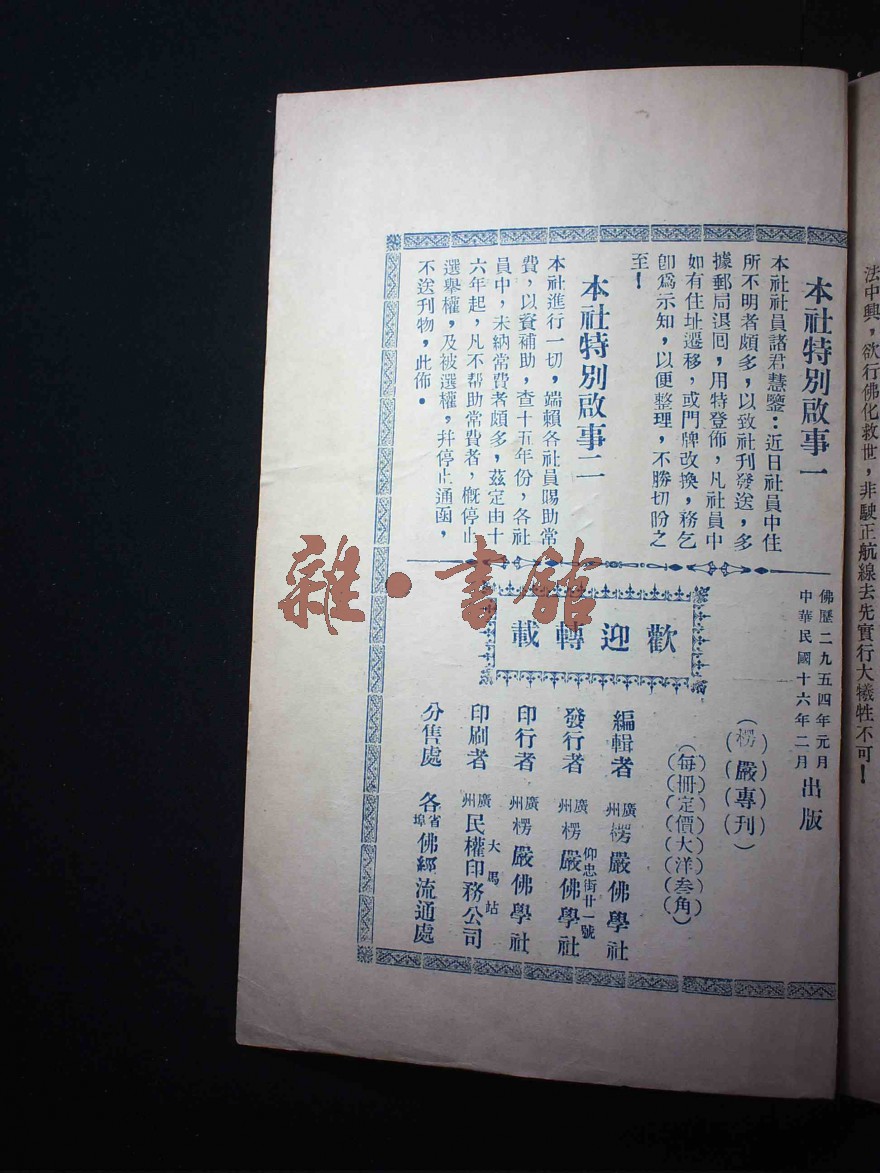 法中興，欲行佛化救世，非駛正航線去先實行大犧牲不可！
本社特別啟事一
本社社員諸君慧鑒：近日社員中住
所不明者頗多，以致社刊發送，多
據郵局退囘，用特登佈，凡社員中
如有住址遷移，或門牌改換，務乞
卽爲示知，以便整理，不勝切盼之
至！
本社特別啟事二
本社進行一切，端賴各社員賜助常
費，以資補助，查十五年份，各社
員中，未納常費者頗多，茲定由十
六年起，凡不帮助常費者，槪停止
選舉權，及被選權，幷停止通函，
不送刊物，此佈。
佛歷二九五四年元月
中華民國十六年二月
出版
（楞嚴專刊）
（每册定價大洋叁角）
歡迎轉載
編輯者 廣州楞嚴佛學社
仰忠街廿一號
發行者 廣州楞嚴佛學社
印行者 廣州楞嚴佛學社
大馬站
印刷者 廣州民權印務公司
分售處 各省埠佛經流通處
雜·書館